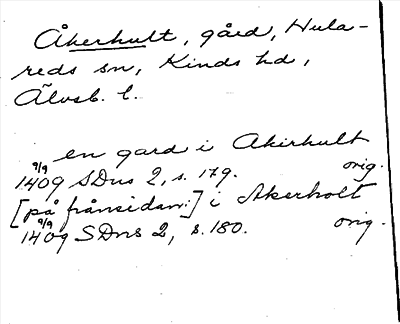 Åkerhult, gård, Hula-
reds sn, Kinds hd,
Älvsb. l.
en gard i Akirhult
9/9 1409 SDns 2, s. 179. orig.
[på frånsidan:] i Akerholt
9/9 1409 SDns 2, s. 180. orig.